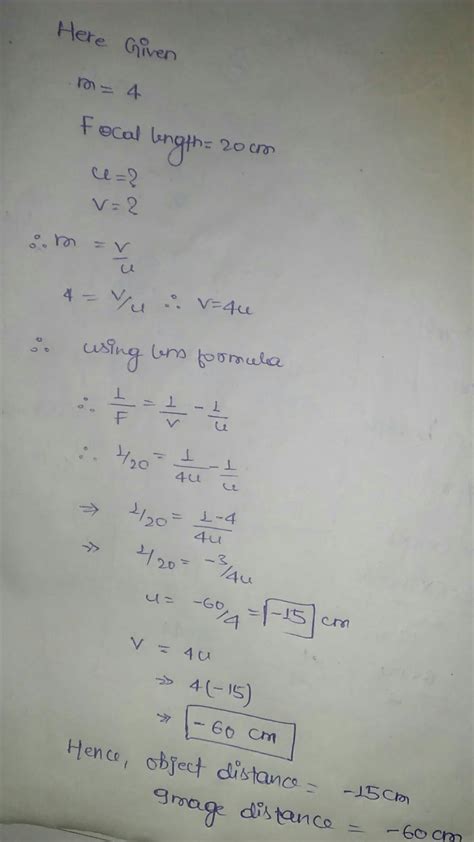 Here Given
m = 4
Focal length = 20 cm
u = ?
v = ?
∴ m = v/u
4 = v/u ∴ v = 4u
∴ using lens formula
∴ 1/F = 1/v - 1/u
∴ 1/20 = 1/4u - 1/u
⇒ 1/20 = 1-4/4u
⇒ 1/20 = -3/4u
u = -60/4 = -15 cm
v = 4u
⇒ 4(-15)
⇒ -60 cm
Hence, object distance = -15cm
Image distance = -60cm